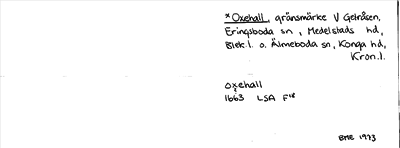 *Oxehall, gränsmärke V Getråsen,
Eringsboda sn, Medelstads hd,
Blek.l. o. Älmeboda sn, Konga hd,
Kron.l.
Oxehall
1663 LSA F18
BME 1973